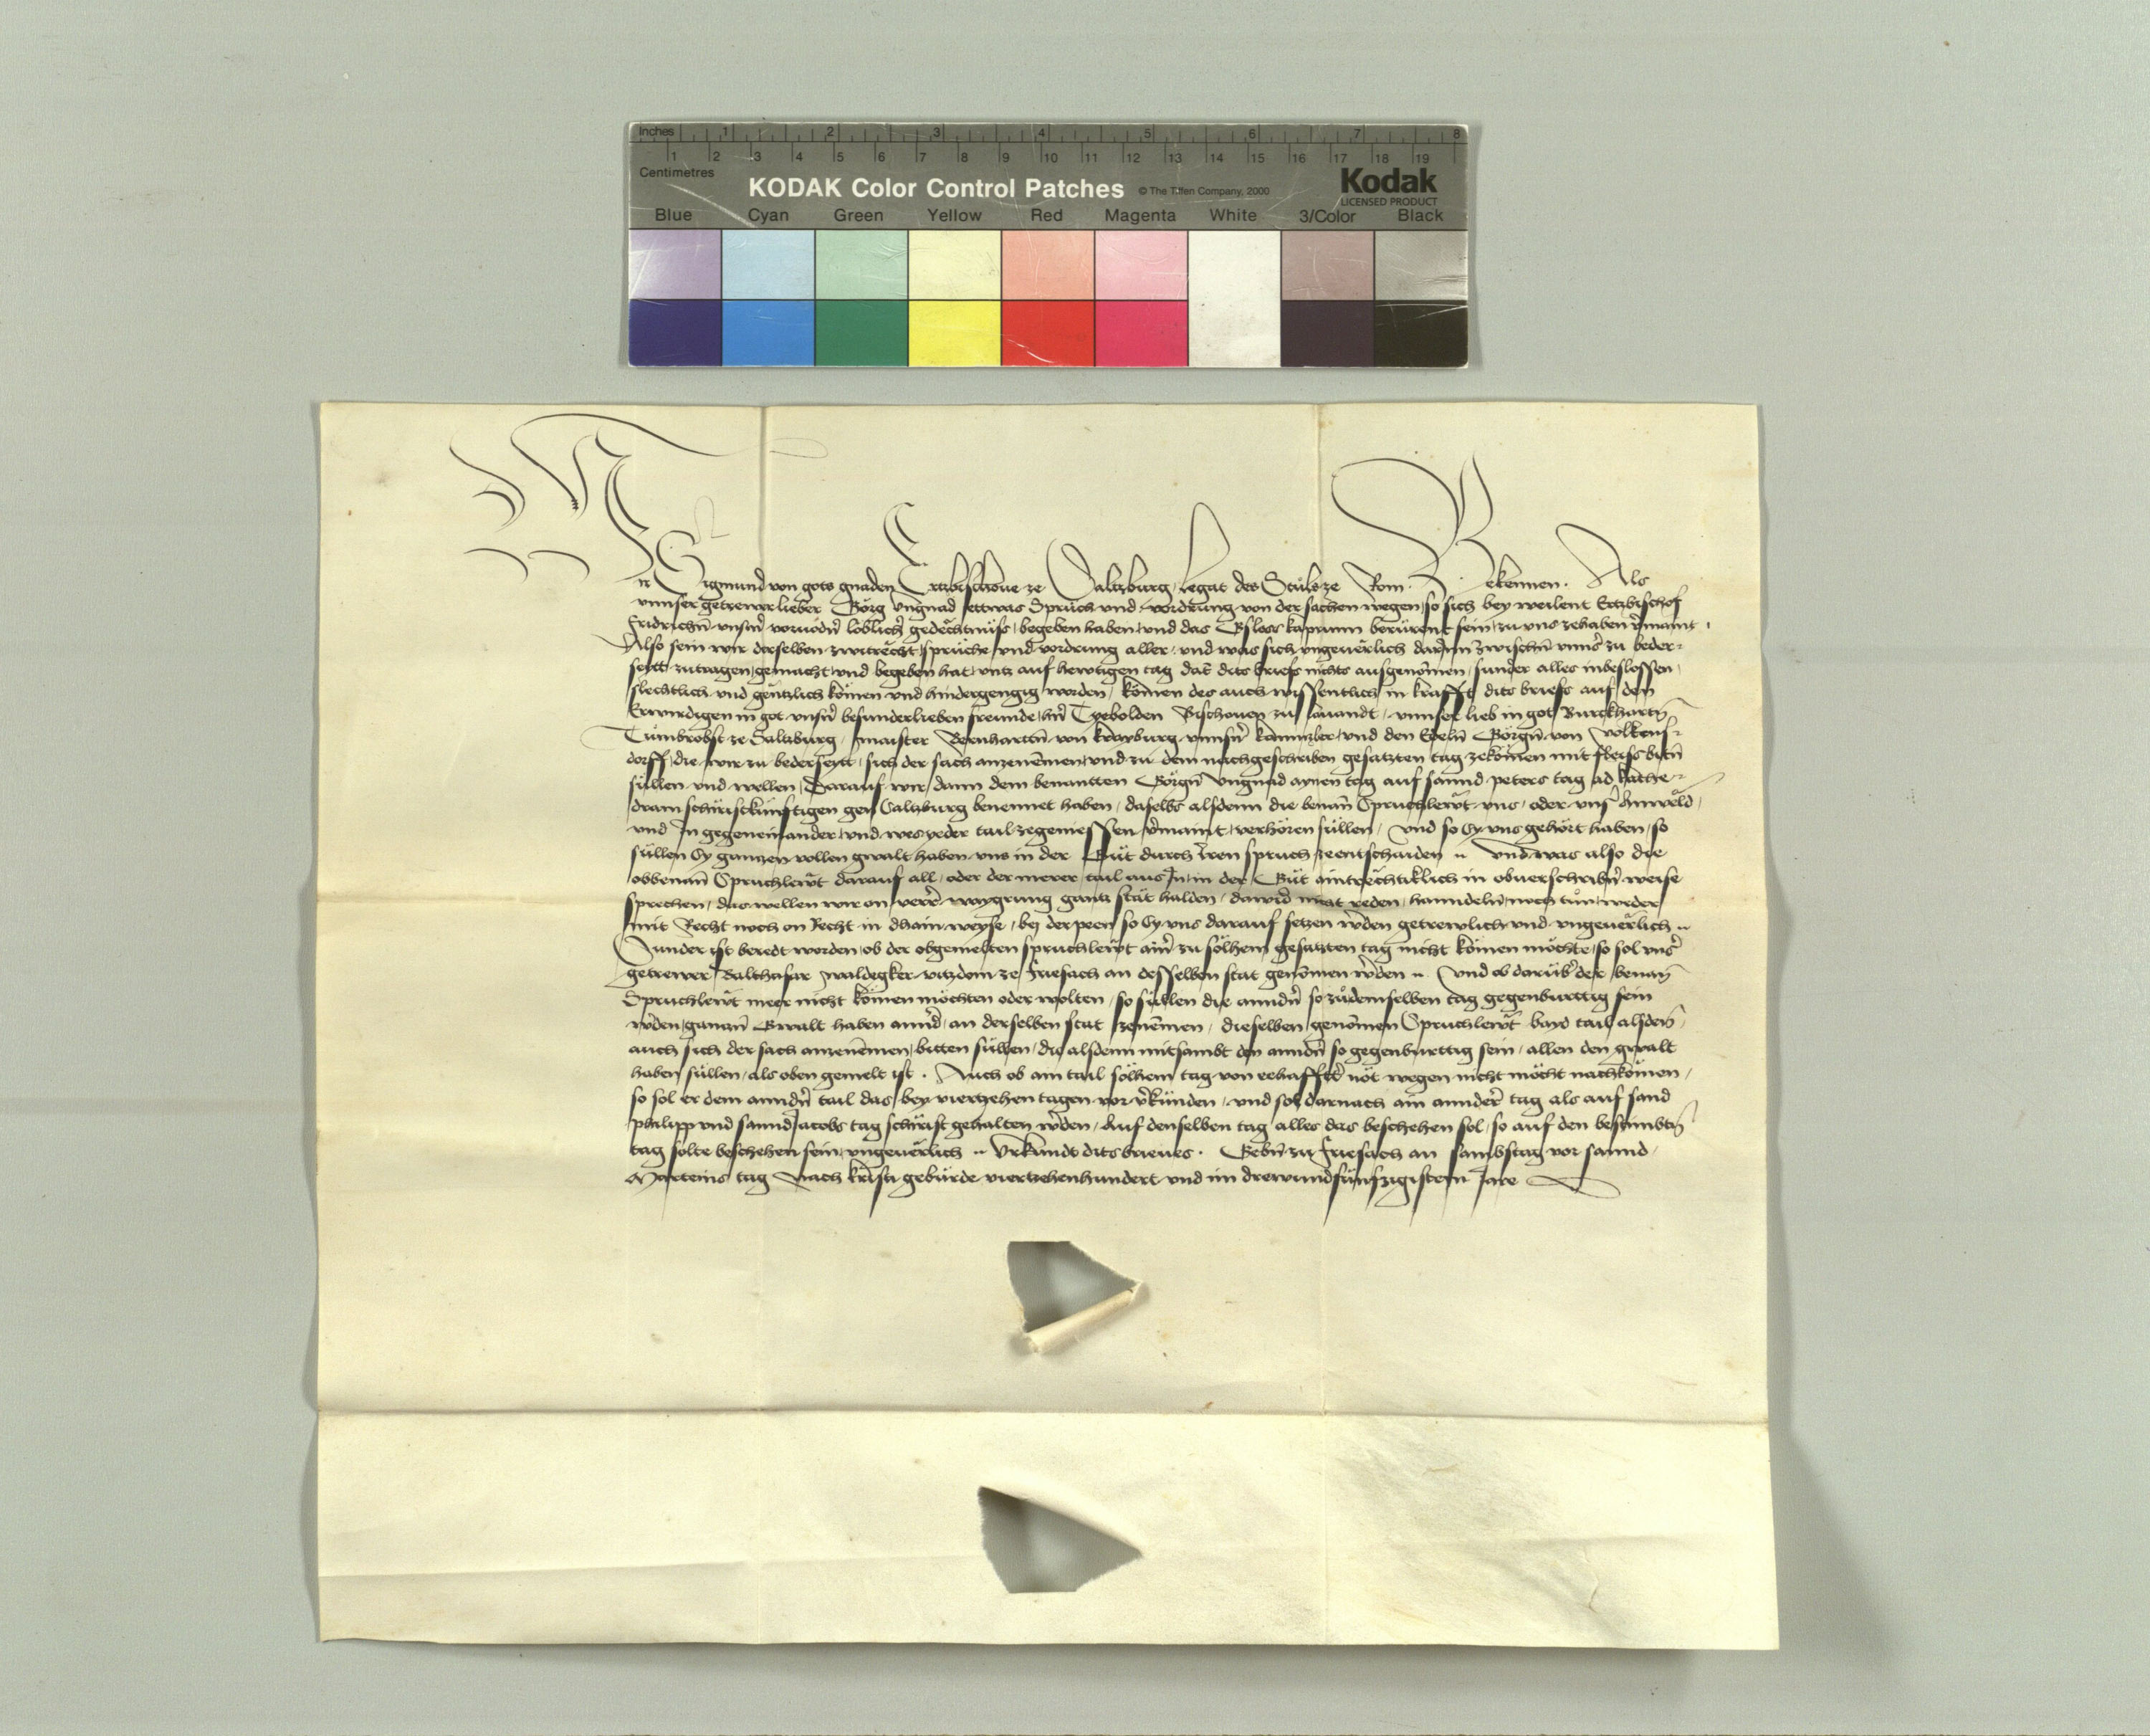 Inches 1 2 3 4 5 6 7 8
1 2 3 4 5 6 7 8 9 10 11 12 13 14 15 16 17 18 19
Centimetres
KODAK Color Control Patches © The Tiffen Company, 2000 Kodak
LICENSED PRODUCT
Blue Cyan Green Yellow Red Magenta White 3/Color Black
Wir Sigmund von gots gnaden Ertzbischoue ze Saltzburg, Legat des Stuls ze Rom. Bekennen. Als
vnnser getrewer lieber Görg Vngnad ettwas Spruch vnd vordrung von der sachen wegen, so sich bey weilent Ertzbischof
Fridrichñ vnsm̃ voruodñ löblicher gedechtnüss, begeben haben, vnd das Gsloss kaprunn berürent sein, zu vns zehaben v̓maint,
Also sein wir derselben zwitrecht, sprüche vnd vordrung aller, vnd was sich vngeuerlich darinn zwischñ vnns̓ zu beder-
seytt zutragen, gemacht, vnd begeben hat, vntz auf hewtigen tag dat̄ dits briefs nichts ausgenomen, sunder alles inbeslossen,
slechtlich vnd gentzlich komen vnd hindergengig worden, komen des auch wissentlich in krafft dits briefs auf den
Erwirdigen in got vnsñ besunderlieben freunde, hñ Tyebolden Bischouen zu lauandt, vnnser lieb in got Burckhartñ
Tumbrobst ze Saltzburg, maister Bernhartñ von krayburg vnnsñ kanntzler, vnd den Edelñ Görgñ von Volkens-
dorff, die wir zu bederseytt, sich der sach anzenemen, vnd zu dem nachgeschriben gesatzten tag zekomen mit fleiss bitñ
süllen vnd wellen, Darauf wir dann dem benantten Görgñ Vngnad aynen tag auf sannd peters tag ad kathe-
dram schiristkünftigen gen Saltzburg benennet haben, daselbs alsdenn die benañ Spruchlewt vns, oder vns̓ Anweld,
vnd In gegeneinander, vnd wes yeder tail zegeniessen v̓maint, verhören süllen, Vnd so Sy vns gehört haben, so
süllen Sy gantzen vollen gwalt haben vns in der Güt durch Iren spruch zeentschaiden. Vnd was also die
obbenañ Spruchlewt darauf all, oder der merer tail aus In, in der Güt aintrechtiklich in obuerschribñ weise
sprechen, das wellen wir on verr̓ waygrung gantz stät halden, dawid̓ nicht reden, hanndeln, noch tun, weder
mit Recht noch on Recht in dhain weyse, bey der peen so Sy vns darauf setzen w̓den getrewlich vnd vngeuerlich
Sunder ist beredt worden, ob der obgemelten spruchlewt ain̓ zu sölhem gesatzten tag nicht komen möchte, so sol vns̓
getrewer Balthasar Waldegker vitzdom ze Friesach an desselben stat genomen w̓den. Vnd ob darüb̓ der benañ
Spruchlewt meer nicht komen möchten oder wolten, so süllen die anndñ so zu demselben tag gegenburttig sein
w̓den, gantzñ Gwalt haben annd̓, an derselben stat zenemen, dieselben genomen Spruchlewt bayd tail alsdeñ,
auch sich der sach anzenemen, bitten süllen, die alsdenn mitsambt den anndñ so gegenburttig sein, allen den gwalt
haben süllen, als oben gemelt ist. Auch ob ain tail sölhem tag von eehafft̓ nöt wegen nicht möcht nachkomen,
so sol er dem anndñ tail das bey viertzehen tagen vor v̓künden, vnd sol darnach ain annder tag als auf sand
philipp vnd sannd Jacobs tag schirist gehalten w̓den, Auf denselben tag alles das beschehen sol, so auf den bestimbtñ
tag solte beschehen sein, vngeuerlich. Vrkundt dits brieues. Gebñ zu Friesach an sambstag vor sannd
Marteins tag Nach kristi gebürde viertzehenhundert vnd im drewundfünfzigistem Jare